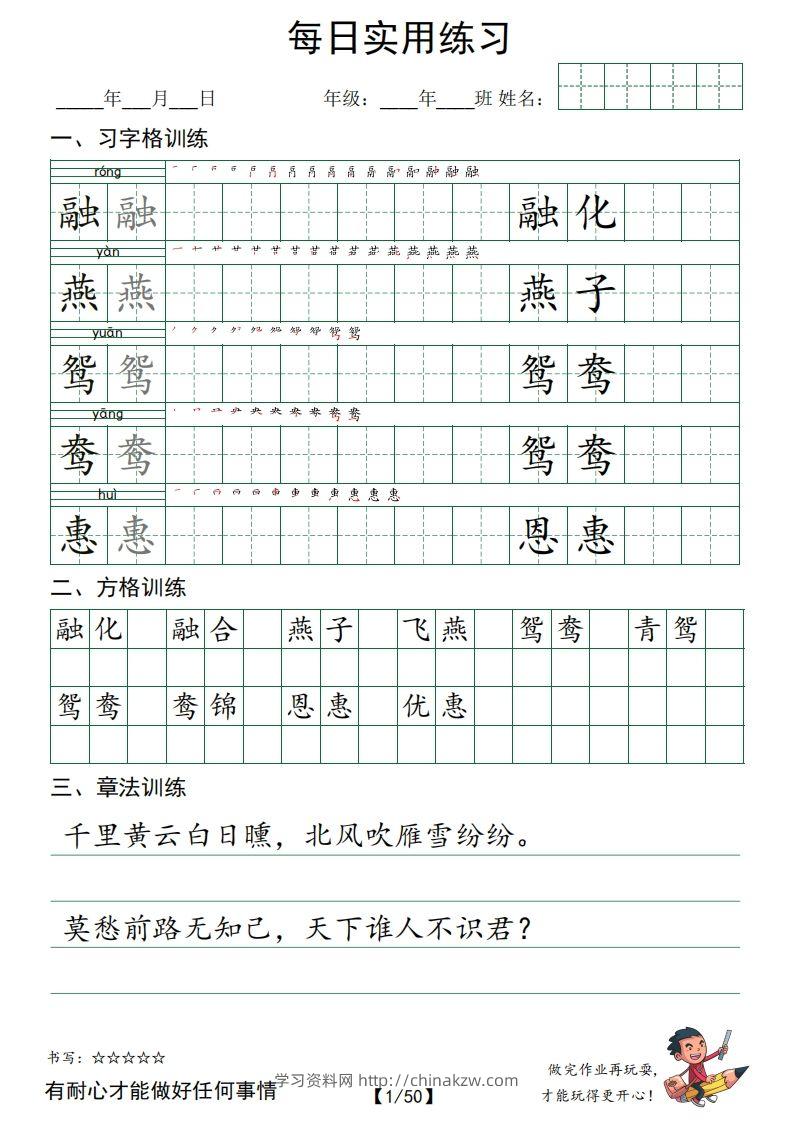 每日实用练习
_____年___月___日 年级：____年____班 姓名：
一、习字格训练
róng
融 融 融 化
yàn
燕 燕 燕 子
yuān
鸳 鸳 鸳 鸯
yāng
鸯 鸯 鸳 鸯
huì
惠 惠 恩 惠
二、方格训练
融化 融合 燕子 飞燕 鸳鸯 青鸳
鸳鸯 鸯锦 恩惠 优惠
三、章法训练
千里黄云白日曛，北风吹雁雪纷纷。
莫愁前路无知己，天下谁人不识君？
书写：☆☆☆☆☆
有耐心才能做好任何事情
学习资料网 http://chinakzw.com
【1/50】
做完作业再玩耍，
才能玩得更开心！